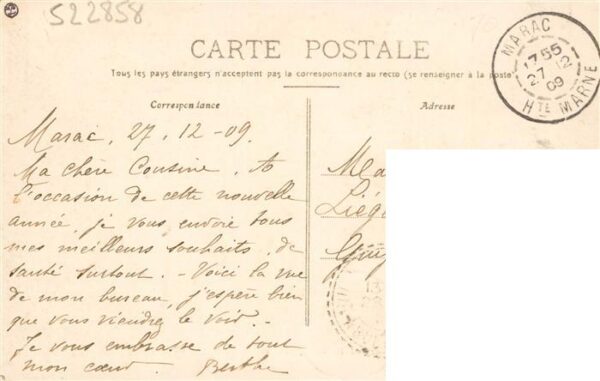 522858
CARTE POSTALE
Tous les pays étrangers n'acceptent pas la correspondance au recto (se renseigner à la poste)
Correspondance
Adresse
MARAC
17 55
27 12
09
HTE MARNE
Marac, 27, 12 - 09.
Ma chère Cousine, A
l'occasion de cette nouvelle
année, je vous envoie tous
mes meilleurs souhaits, de
santé surtout. - Voici la vue
de mon bureau, j'espère bien
que vous viendrez le voir. -
Je vous embrasse de tout
mon cœur. Berthe
Liég